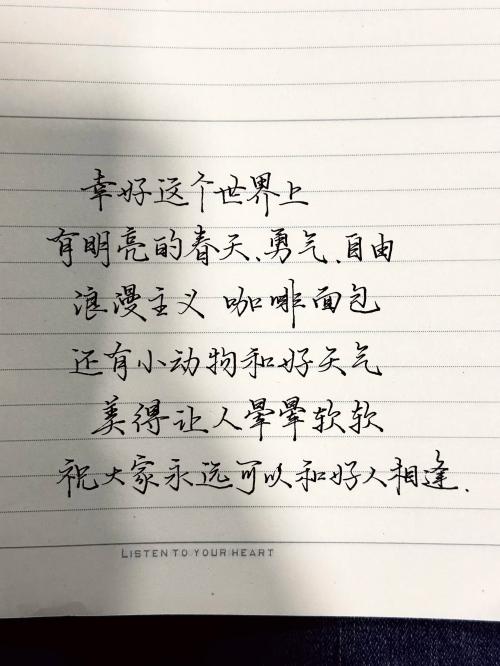 幸好这个世界上
有明亮的春天、勇气、自由
浪漫主义 咖啡面包
还有小动物和好天气
美得让人晕晕软软
祝大家永远可以和好人相逢.
LISTEN TO YOUR HEART